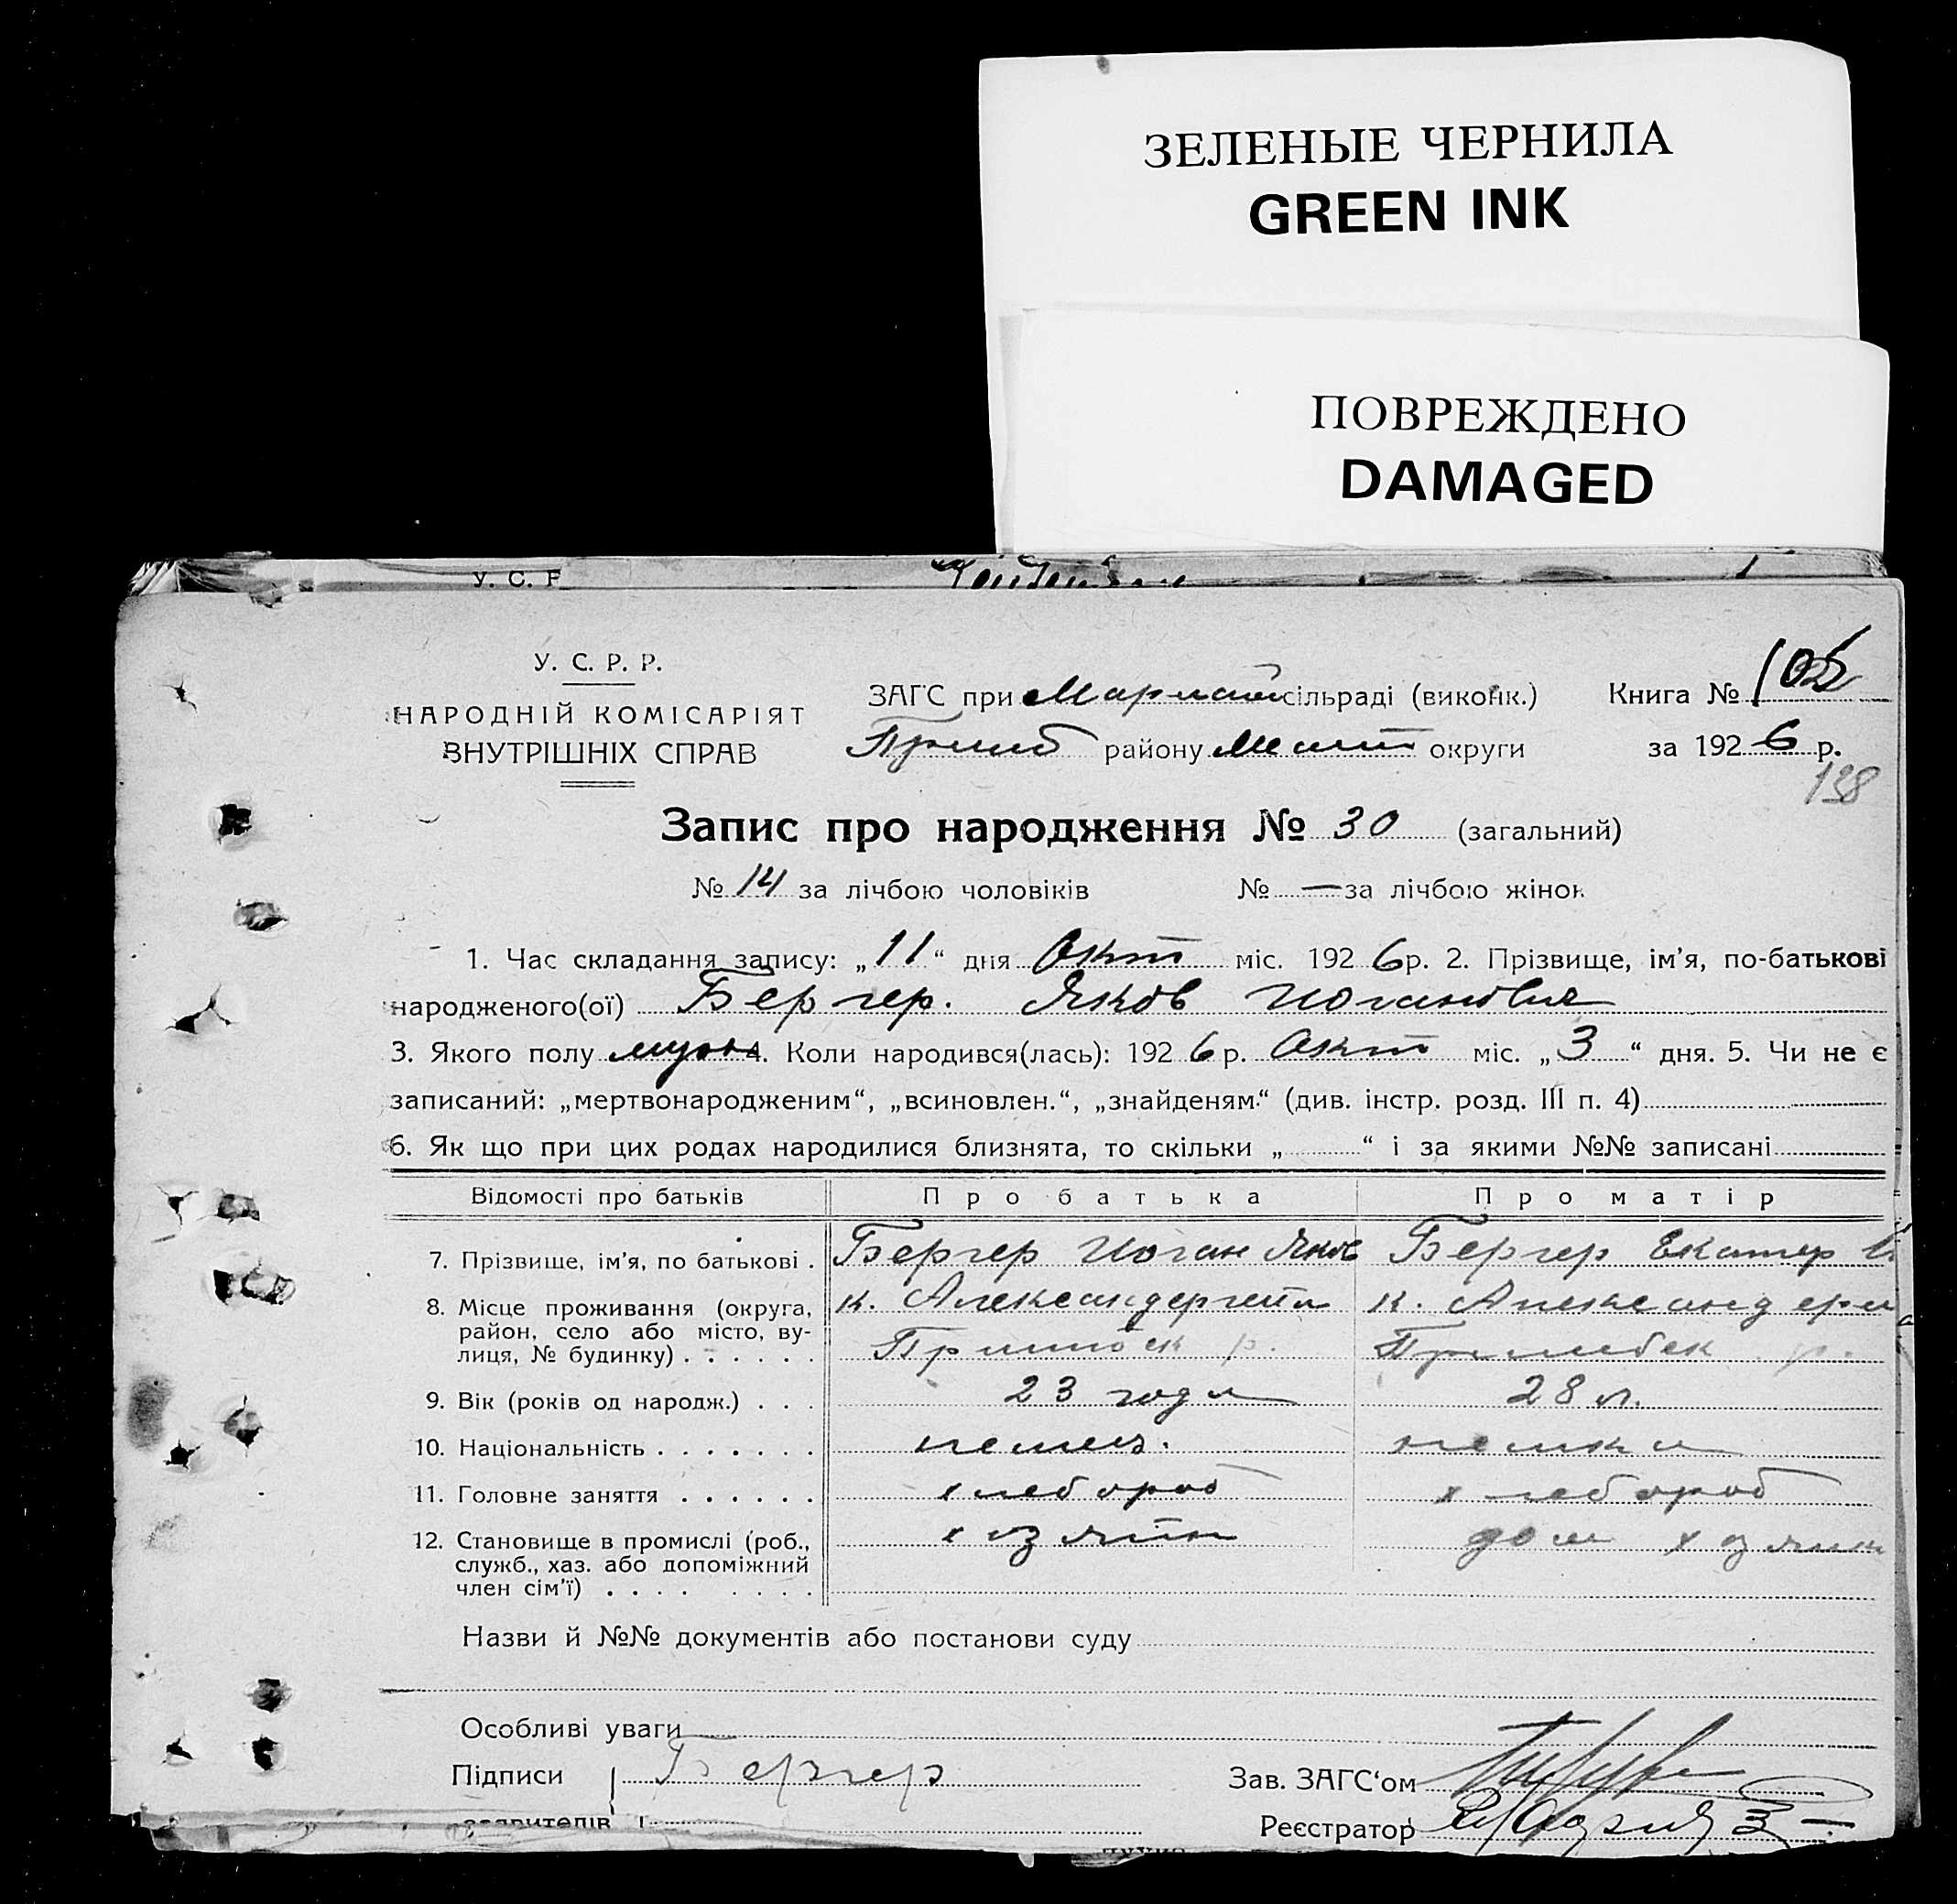 ЗЕЛЕНЫЕ ЧЕРНИЛА
GREEN INK
ПОВРЕЖДЕНО
DAMAGED
У. С. Р
У. С. Р. Р.
НАРОДНІЙ КОМІСАРІЯТ
ВНУТРІШНІХ СПРАВ
ЗАГС при сільраді (виконк.) Книга №
району округи за 1926 р.
138
Запис про народження № 30 (загальний)
№ 14 за лічбою чоловіків № — за лічбою жінок
1. Час складання запису: „11“ дня Окт міс. 1926 р. 2. Прізвище, ім’я, по-батькові
народженого(ої) Бергер. Яков Иоганович
3. Якого полу муж 4. Коли народився(лась): 1926 р. Окт міс. „3“ дня. 5. Чи не є
записаний: „мертвонародженим“, „всиновлен.“, „знайденям“ (див. інстр. розд. III п. 4)
6. Як що при цих родах народилися близнята, то скільки „ “ і за якими №№ записані
Відомості про батьків Про батька Про матір
7. Прізвище, ім’я, по батькові . Бергер Иоган Яков Бергер Екатер
8. Місце проживання (округа, к. Александергейм к. Александерг
район, село або місто, ву-
лиця, № будинку) . . . . . . р. р.
9. Вік (років од народж.) . . . 23 года 28 л.
10. Національність . . . . . . . немец. немка
11. Головне заняття . . . . . . хлебороб хлебороб
12. Становище в промислі (роб., хозяин дом хозяин
служб., хаз. або допоміжний
член сім’ї) . . . . . . . .
Назви й №№ документів або постанови суду
Особливі уваги
Підписи Бергер Зав. ЗАГС‘ом
заявителів Реєстратор